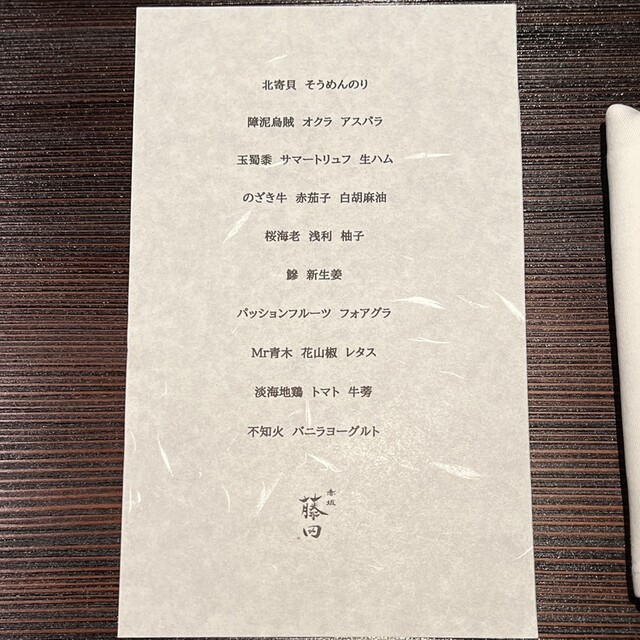 北寄貝 そうめんのり
障泥烏賊 オクラ アスパラ
玉蜀黍 サマートリュフ 生ハム
のざき牛 赤茄子 白胡麻油
桜海老 浅利 柚子
鰺 新生姜
パッションフルーツ フォアグラ
Mr青木 花山椒 レタス
淡海地鶏 トマト 牛蒡
不知火 バニラヨーグルト
赤坂
藤田